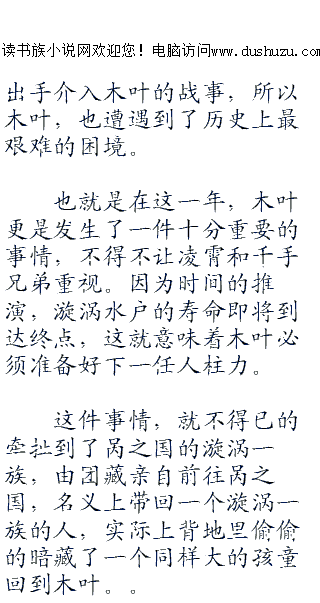 读书族小说网欢迎您！电脑访问www.dushuzu.com
出手介入木叶的战事，所以
木叶，也遭遇到了历史上最
艰难的困境。
也就是在这一年，木叶
更是发生了一件十分重要的
事情，不得不让凌霄和千手
兄弟重视。因为时间的推
演，漩涡水户的寿命即将到
达终点，这就意味着木叶必
须准备好下一任人柱力。
这件事情，就不得已的
牵扯到了涡之国的漩涡一
族，由团藏亲自前往涡之
国，名义上带回一个漩涡一
族的人，实际上背地里偷偷
的暗藏了一个同样大的孩童
回到木叶。。